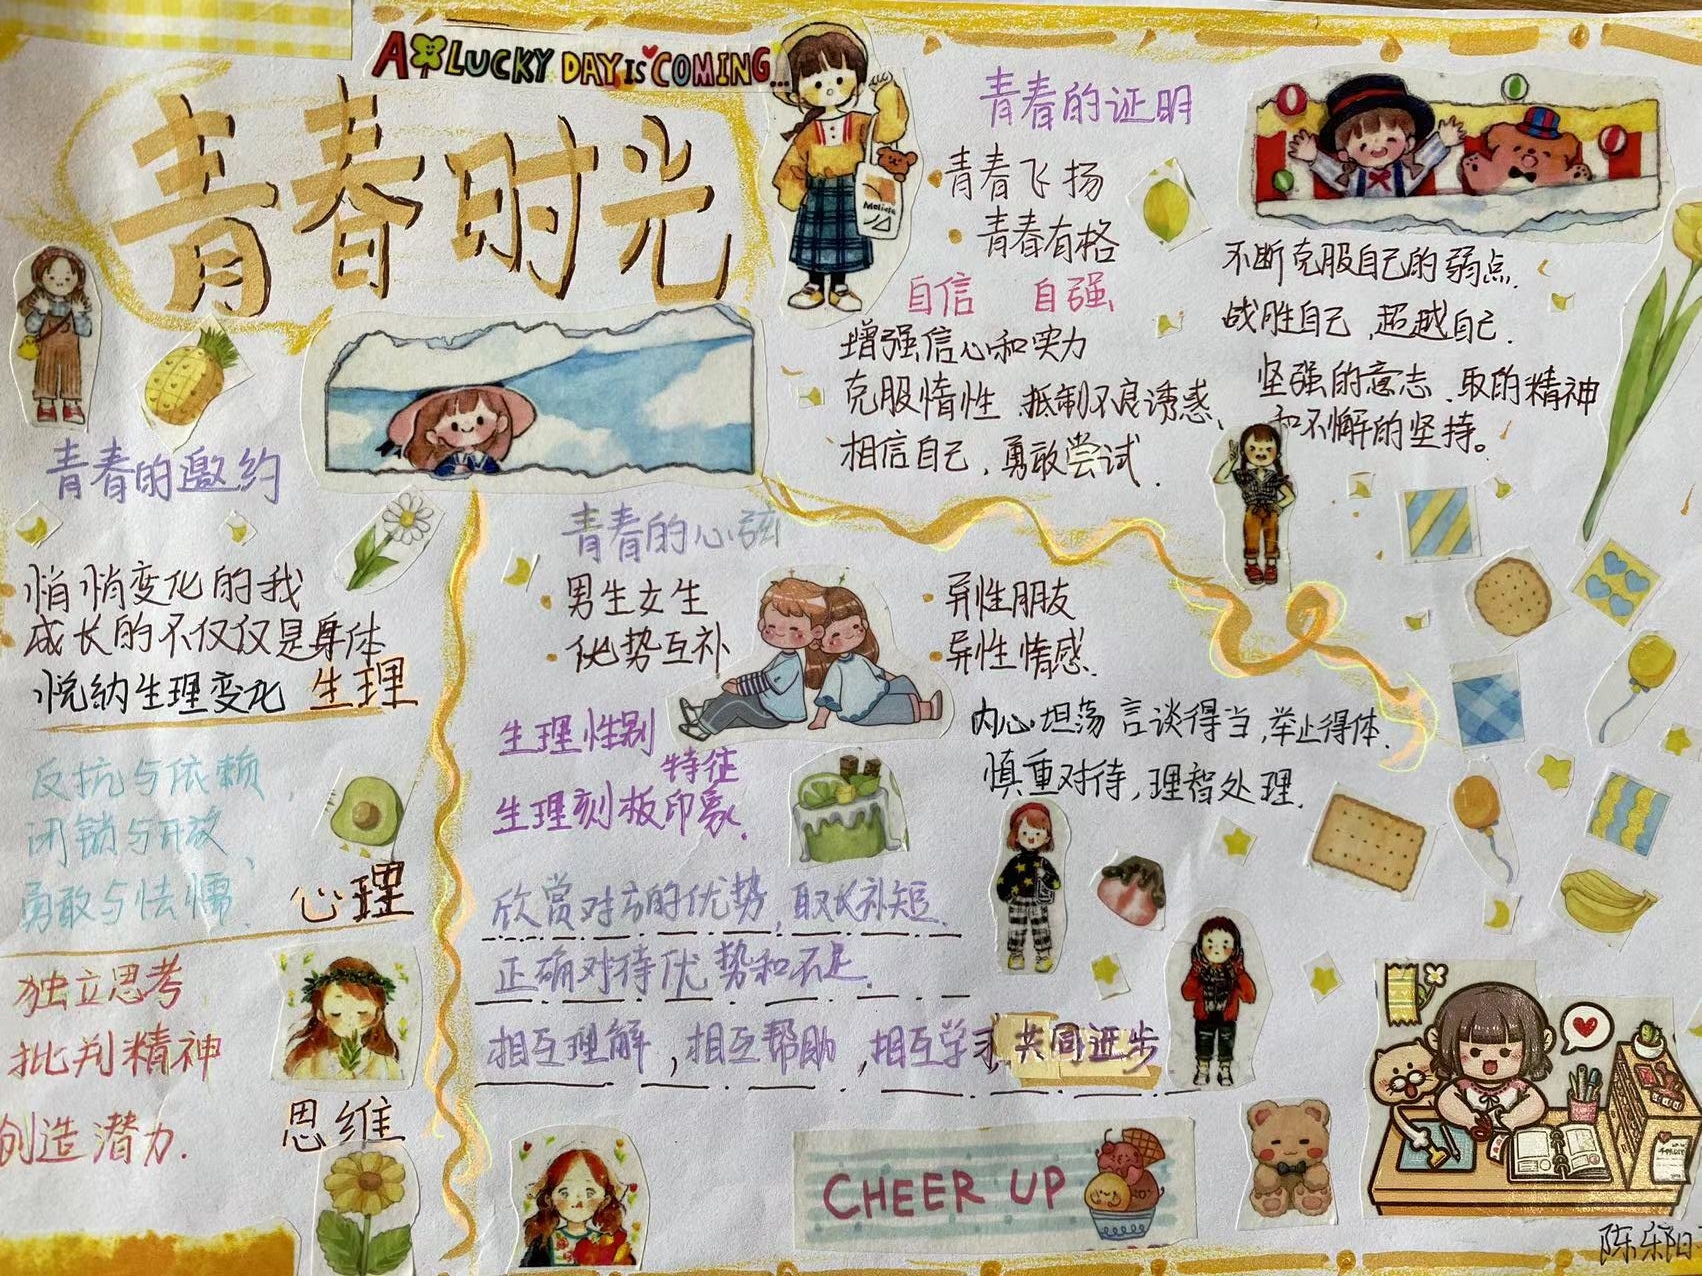 A LUCKY DAY IS COMING...
青春时光
青春的邀约
悄悄变化的我
成长的不仅仅是身体
悦纳生理变化 生理
反抗与依赖
闭锁与开放、
勇敢与怯懦.
心理
独立思考
批判精神
创造潜力.
思维
青春的心弦
男生女生
优势互补
异性朋友
异性情感.
内心坦荡 言谈得当,举止得体.
慎重对待,理智处理.
生理性别
特征
生理刻板印象.
欣赏对方的优势,取长补短.
正确对待优势和不足.
相互理解,相互帮助,相互学习 共同进步
青春的证明
青春飞扬
青春有格
自信 自强
增强信心和实力
克服惰性.抵制不良诱惑、
相信自己.勇敢尝试.
不断克服自己的弱点.
战胜自己,超越自己.
坚强的意志.取的精神
和不懈的坚持。
CHEER UP